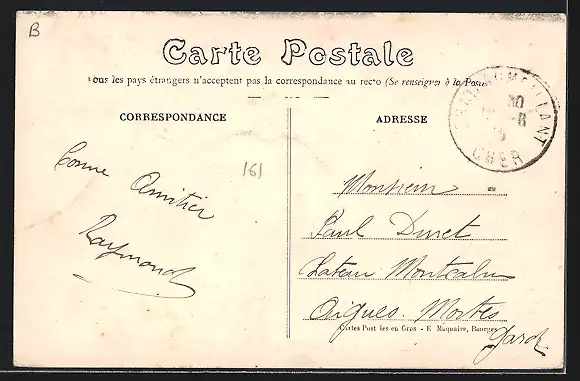 B
Carte Postale
Tous les pays étrangers n'acceptent pas la correspondance au recto (Se renseigner à la Poste)
CORRESPONDANCE
ADRESSE
CHATEAUMEILLANT
CHER
161
Bonne
Amitier
Raymond
Monsieur
Paul Duret
Chateau Montcalm
Aigues. Mortes
Cartes Postales en Gros - E. Maquaire, Bourges
Gard